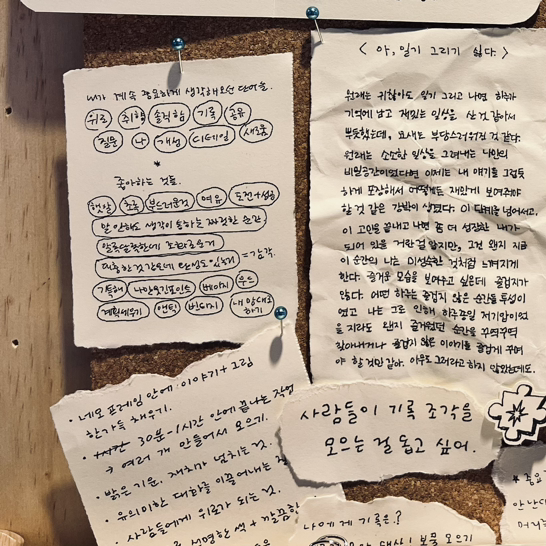 내가 계속 중요하게 생각해오던 단어들.
위로 취향 솔직함 기록 공유
질문 나 개성 디테일 새로움
좋아하는 것들.
햇살 초록 부드러운것 여유 도전+성취
말 안해도 생각이 통하는 짜릿한 순간
= 감각.
기특해 나만의 베이지 우드
계획세우기 앤틱 빈티지 내 맘대로 하기
< 아, 일기 그리기 싫다. >
원래는 귀찮아도 일기 그리고 나면 하루가
기억에 남고 재밌는 일상을 산 것 같아서
뿌듯했는데, 요새는 부담스러워진 것 같다.
원래는 소소한 일상을 그려내는 나만의
비밀공간이었다면 이제는 내 얘기를 그럴듯
하게 포장해서 어떻게든 재밌게 보여줘야
할 것 같은 강박이 생겼다. 이 단계를 넘어서고,
이 고민을 끝내고 나면 좀 더 성장한 내가
되어 있을 거란 걸 알지만, 그런 왠지 지금
이 순간의 나는 미성숙한 것처럼 느껴지게
한다. 즐거운 모습을 보여주고 싶은데 즐겁지가
않다. 어떤 하루는 즐겁지 않은 순간들 투성이
였고 나는 그로 인해 하루종일 저기압이었
을 지라도 왠지 즐거웠던 순간을 꾸역꾸역
찾아내거나 즐겁지 않은 이야기를 즐겁게 꾸며
야 할 것만 같아. 아무도 그러라고 하지 않았는데도.
• 네모 프레임 안에 : 이야기 + 그림
한가득 채우기.
• 30분~1시간 안에 끝나는 작업
→ 여러 개 만들어서 모으기.
• 밝은 기운. 재치가 넘치는 것.
• 유의미한 대화를 이끌어내는
• 사람들에게 위로가 되는 것.
선명한 색 + 깔끔한
사람들이 기록 조각을
모으는 걸 돕고 싶어.
나에게 기록은?
보물 모으기